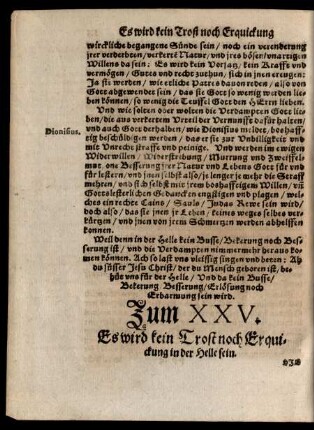 Es wird kein Trost noch Erquickung
würckliche begangene Sünde sein / noch ein verenderung
jrer verderbten / verkerte Natur / und jres bösen / unartigen
Willens da sein: Es wird kein Vorsatz / kein Krafft und
vermögen / Gutes und recht zuthun / sich in jnen ereugen:
Ja sie werden / wie etliche Patres davon reden / also von
Gott abgewendet sein / das sie Gott so wenig werden lie-
ben können / so wenig die Teuffel Gott den HErrn lieben.
Und wie solten oder wolten die Verdampten Gott lie-
ben / die aus verkertem Urteil der Vernunffe dafür halten /
Dionisius.
und auch Gott derhalben / wie Dionisius meldet / boshaff-
tig beschüldigen werden / das er sie zur Unbilligkeit und
mit Unrecht straffe und peinige. Und werden im ewigen
Widerwillen / Widerstrebung / Murrung und Zweiffel
one Besserung jrer Natur und Lebens Gott für und
für lestern / und jnen selbst also / je lenger je mehr die Straff
mehren / und sich selbst mit jrem boshafftigen Willen / und
Gotteslesterlichen Gedancken engstigen und plagen / wel-
ches ein rechte Cains / Sauls / Judas Rewe sein wird /
doch also / das sie jnen jr Leben / keines weges selbes ver-
kürtzen / und jnen von jrem Schmertzen werden abhelffen
konnen.
Weil denn in der Helle kein Busse / Bekerung noch Bes-
serung ist / und die Verdampten nimmermehr heraus ko-
men können. Ach so last uns vleissig singen und beten: Ah
du süsser Jesu Christ / der du Mensch geboren ist / be-
hüt uns für der Helle / Und da kein Busse /
Bekerung Besserung / Erlösung noch
Erbarmung sein wird.
Zum XXV.
Es wird kein Trost noch Erqui-
ckung in der Helle sein.